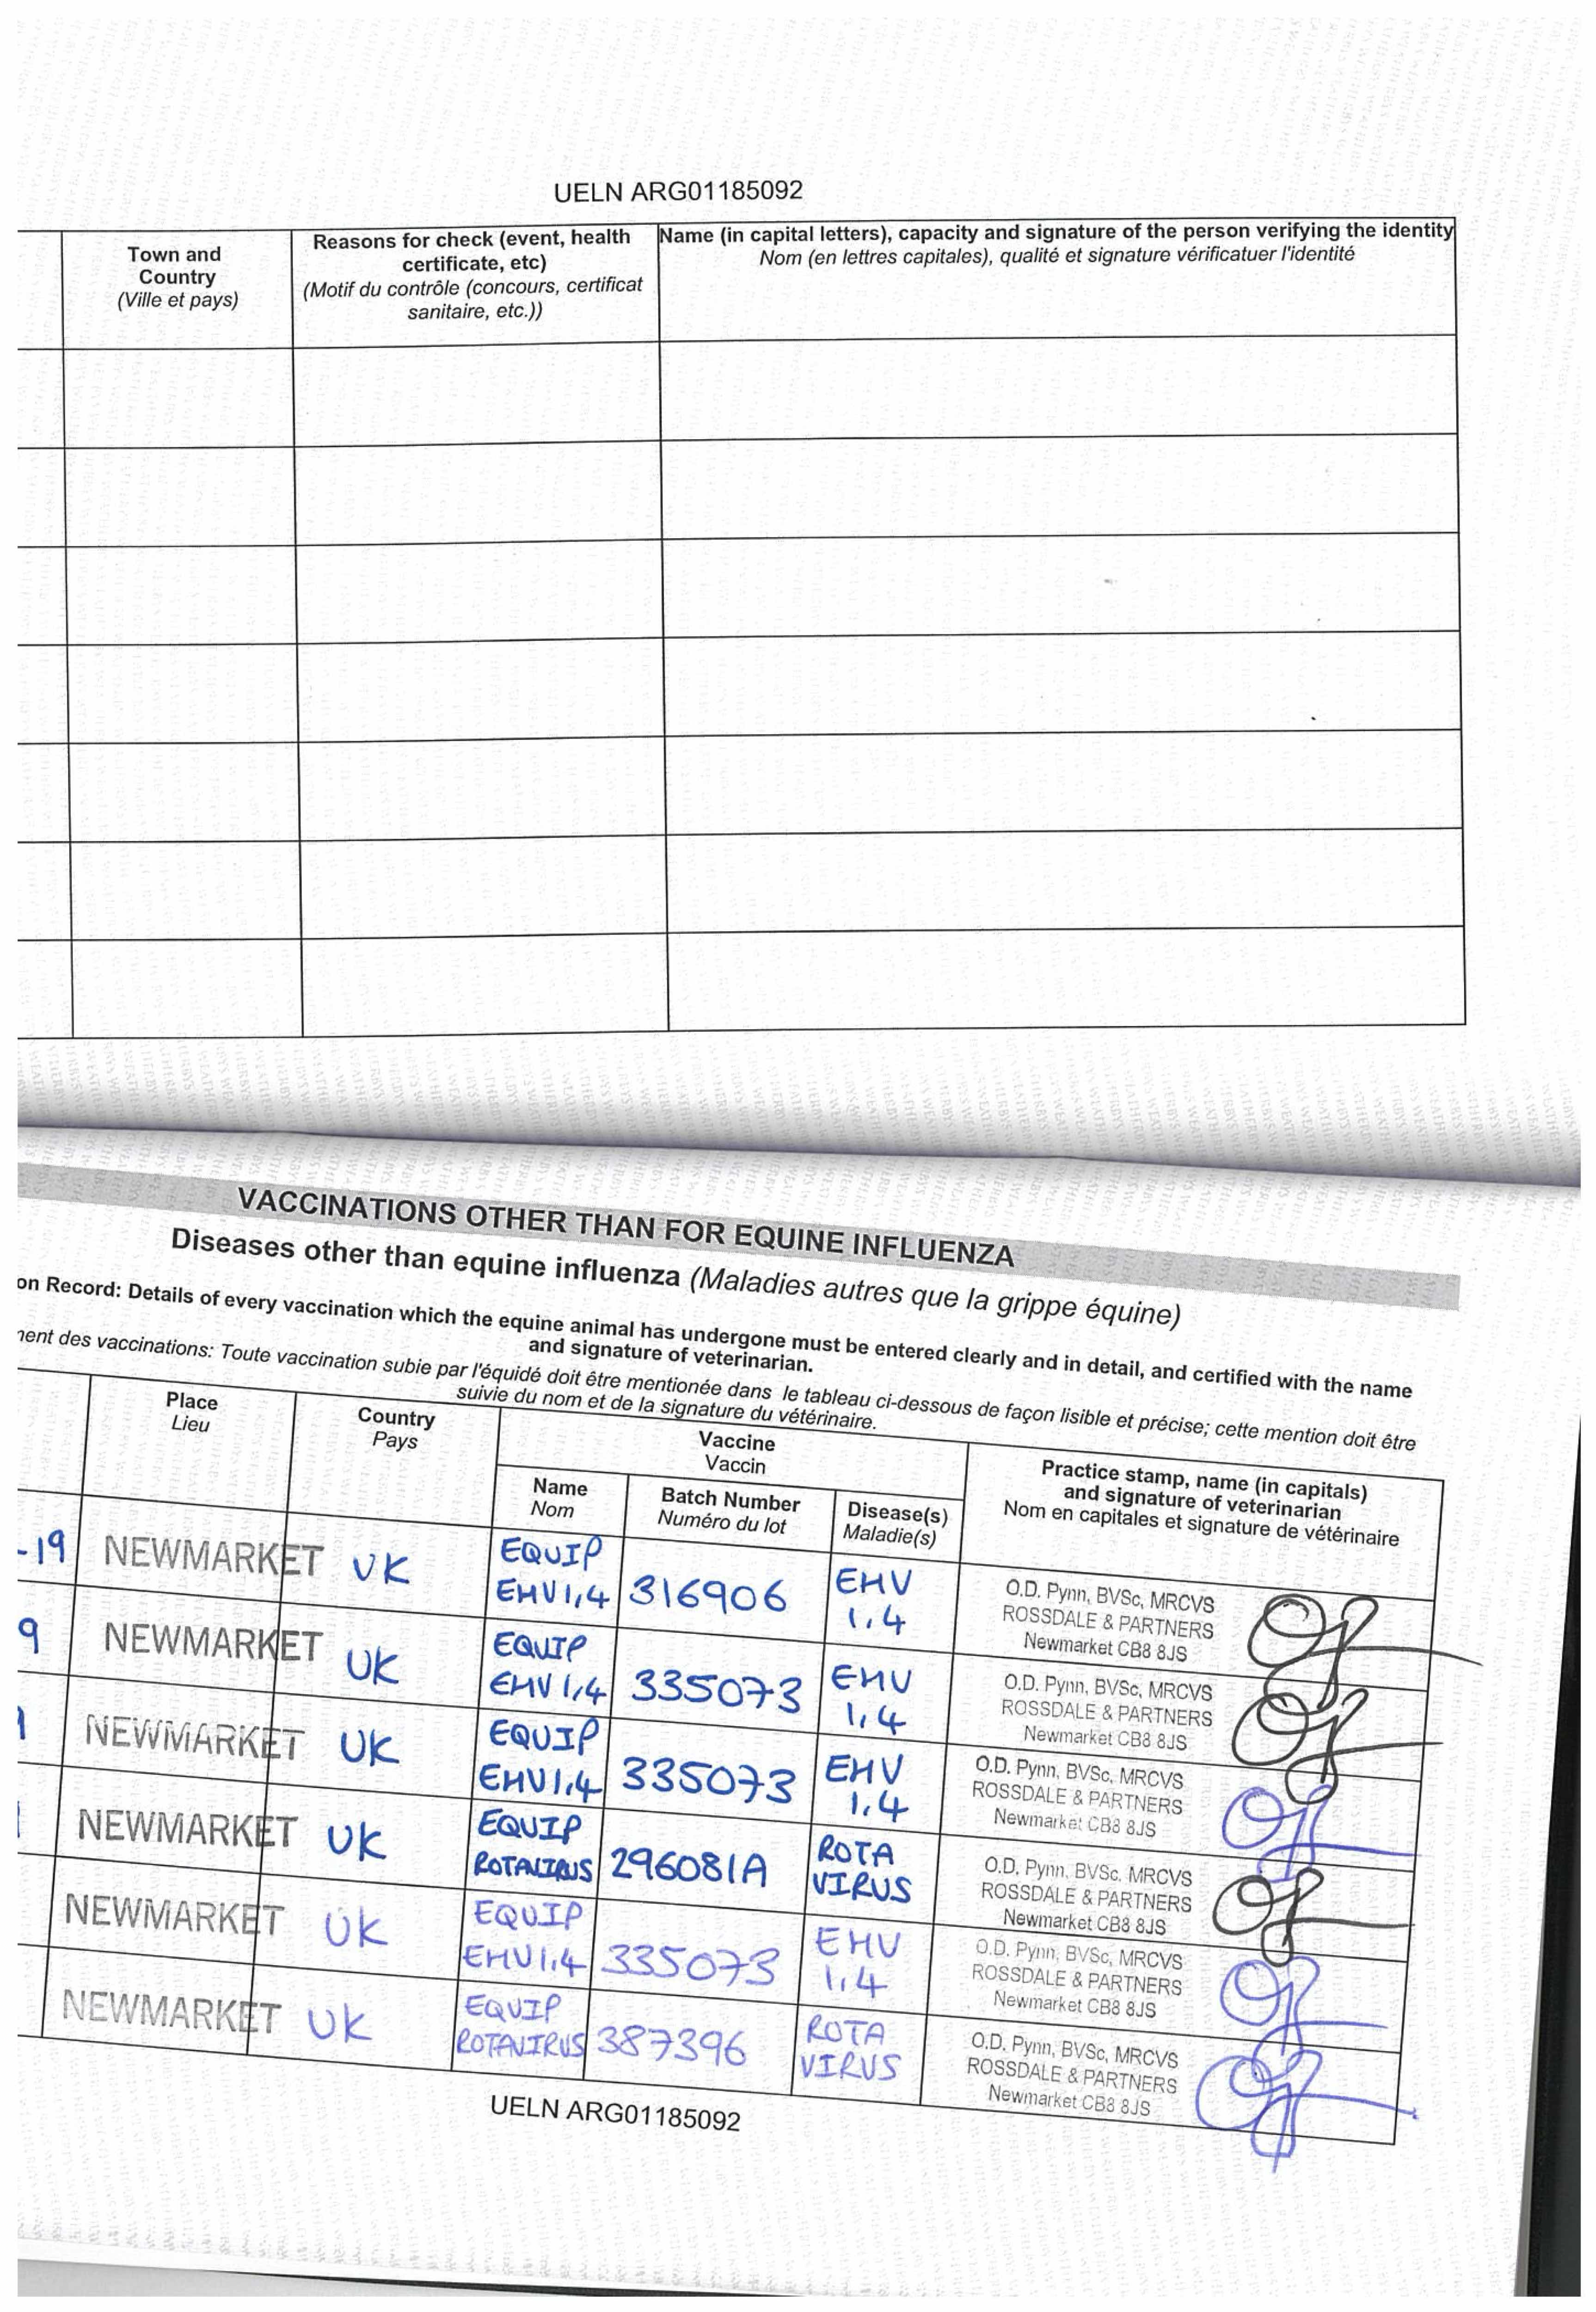 UELN ARG01185092
Town and
Country
(Ville et pays)
Reasons for check (event, health
certificate, etc)
(Motif du contrôle (concours, certificat
sanitaire, etc.))
Name (in capital letters), capacity and signature of the person verifying the identity
Nom (en lettres capitales), qualité et signature vérificatuer l'identité
VACCINATIONS OTHER THAN FOR EQUINE INFLUENZA
Diseases other than equine influenza (Maladies autres que la grippe équine)
on Record: Details of every vaccination which the equine animal has undergone must be entered clearly and in detail, and certified with the name
and signature of veterinarian.
ment des vaccinations: Toute vaccination subie par l'équidé doit être mentionée dans le tableau ci-dessous de façon lisible et précise; cette mention doit être
suivie du nom et de la signature du vétérinaire.
Place
Lieu
Country
Pays
Vaccine
Vaccin
Name
Nom
Batch Number
Numéro du lot
Disease(s)
Maladie(s)
Practice stamp, name (in capitals)
and signature of veterinarian
Nom en capitales et signature de vétérinaire
-19 NEWMARKET UK EQUIP
EHV1,4 316906 EHV
1,4
O.D. Pynn, BVSc, MRCVS
ROSSDALE & PARTNERS
Newmarket CB8 8JS
9 NEWMARKET UK EQUIP
EHV1,4 335073 EHV
1,4
O.D. Pynn, BVSc, MRCVS
ROSSDALE & PARTNERS
Newmarket CB8 8JS
NEWMARKET UK EQUIP
EHV1,4 335073 EHV
1,4
O.D. Pynn, BVSc, MRCVS
ROSSDALE & PARTNERS
Newmarket CB8 8JS
NEWMARKET UK EQUIP
ROTAVIRUS 296081A ROTA
VIRUS
O.D. Pynn, BVSc, MRCVS
ROSSDALE & PARTNERS
Newmarket CB8 8JS
NEWMARKET UK EQUIP
EHV1,4 335073 EHV
1,4
O.D. Pynn, BVSc, MRCVS
ROSSDALE & PARTNERS
Newmarket CB8 8JS
NEWMARKET UK EQUIP
ROTAVIRUS 387396 ROTA
VIRUS
O.D. Pynn, BVSc, MRCVS
ROSSDALE & PARTNERS
Newmarket CB8 8JS
UELN ARG01185092